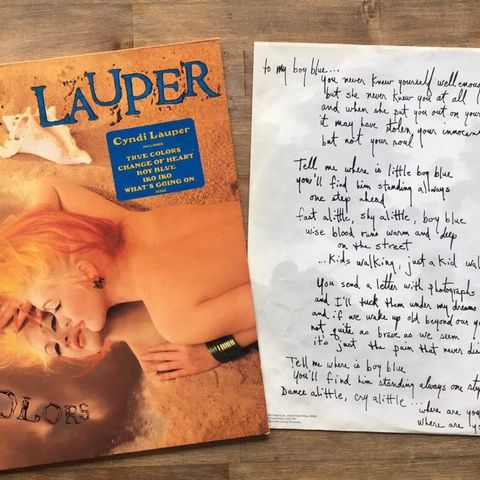 LAUPER
Cyndi Lauper
INCLUDES
TRUE COLORS
CHANGE OF HEART
BOY BLUE
IKO IKO
WHAT'S GOING ON
OLORS
to my boy blue...
You never knew yourself well enough
but she never knew you at all
and when she put you out on your
it may have stolen your innocen
but not your soul
Tell me where is little boy blue
you'll find him standing always
one step ahead
fast alittle, shy alittle, boy blue
wise blood runs warm and deep
on the street
...kids walking, just a kid wal
You send a letter with photographs
and I'll tuck them under my dreams
and if we wake up old beyond our ye
not quite as brave as we seem
it's just the pain that never die
Tell me where is boy blue
You'll find him standing always one step
Dance alittle, cry alittle...
where are you
where are yo